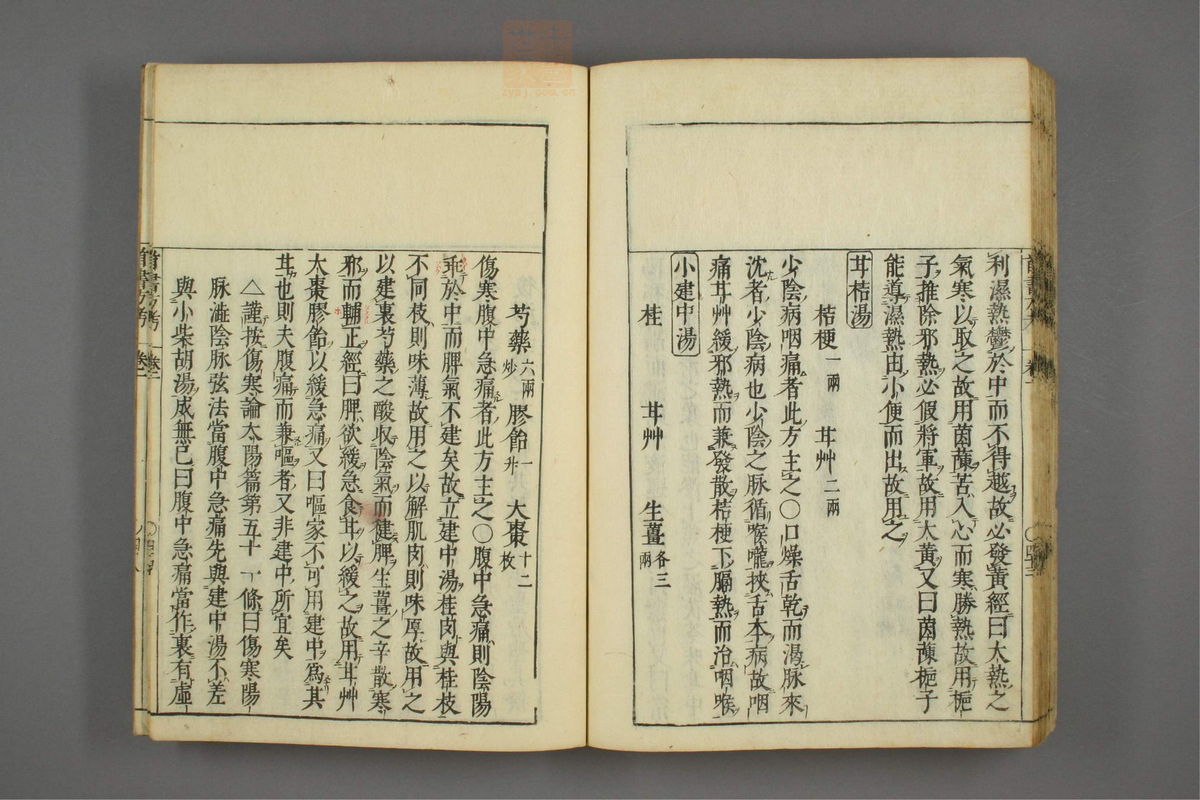 利濕熱鬱於中而不得越故必發黃經曰大熱之
氣寒以取之故用茵蔯苦入心而寒勝熱故用梔
子推除邪熱必假將軍故用大黃又曰茵蔯梔子
能導濕熱由小便而出故用之
甘桔湯
桔梗一兩 甘艸二兩
少陰病咽痛者此方主之〇口燥舌乾而渴脉來
沈者少陰病也少陰之脉循喉嚨挾舌本病故咽
痛甘艸緩邪熱而兼發散桔梗下膈熱而治咽喉
小建中湯
桂 甘艸 生薑各三兩
芍藥六兩炒 膠飴一升 大棗十二枚
傷寒腹中急痛者此方主之〇腹中急痛則陰陽
乖於中而脾氣不建矣故立建中湯桂肉與桂枝
不同枝則味薄故用之以解肌肉則味厚故用之
以建裏芍藥之酸收陰氣而健脾生薑之辛散寒
邪而輔正經曰脾欲緩急食甘以緩之故用甘艸
大棗膠飴以緩急痛又曰嘔家不可用建中爲其
甘也則夫腹痛而兼嘔者又非建中所宜矣
△謹按傷寒論太陽篇第五十一條曰傷寒陽
脉澁陰脉弦法當腹中急痛先與建中湯不差
與小柴胡湯成無已曰腹中急痛當作裏有虛